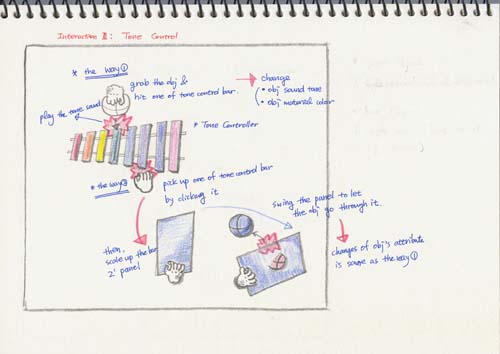 Interaction II: Tone Control
* the way ①
grab the obj &
hit one of tone control bar.
change
• obj sound tone
• obj material color
play the tone sound
* Tone Controller
* the way ②
pick up one of tone control bar
by clicking it
swing the panel to let
the obj go through it.
then,
scale up the bar
2' panel
changes of obj's attribute
is same as the way ①